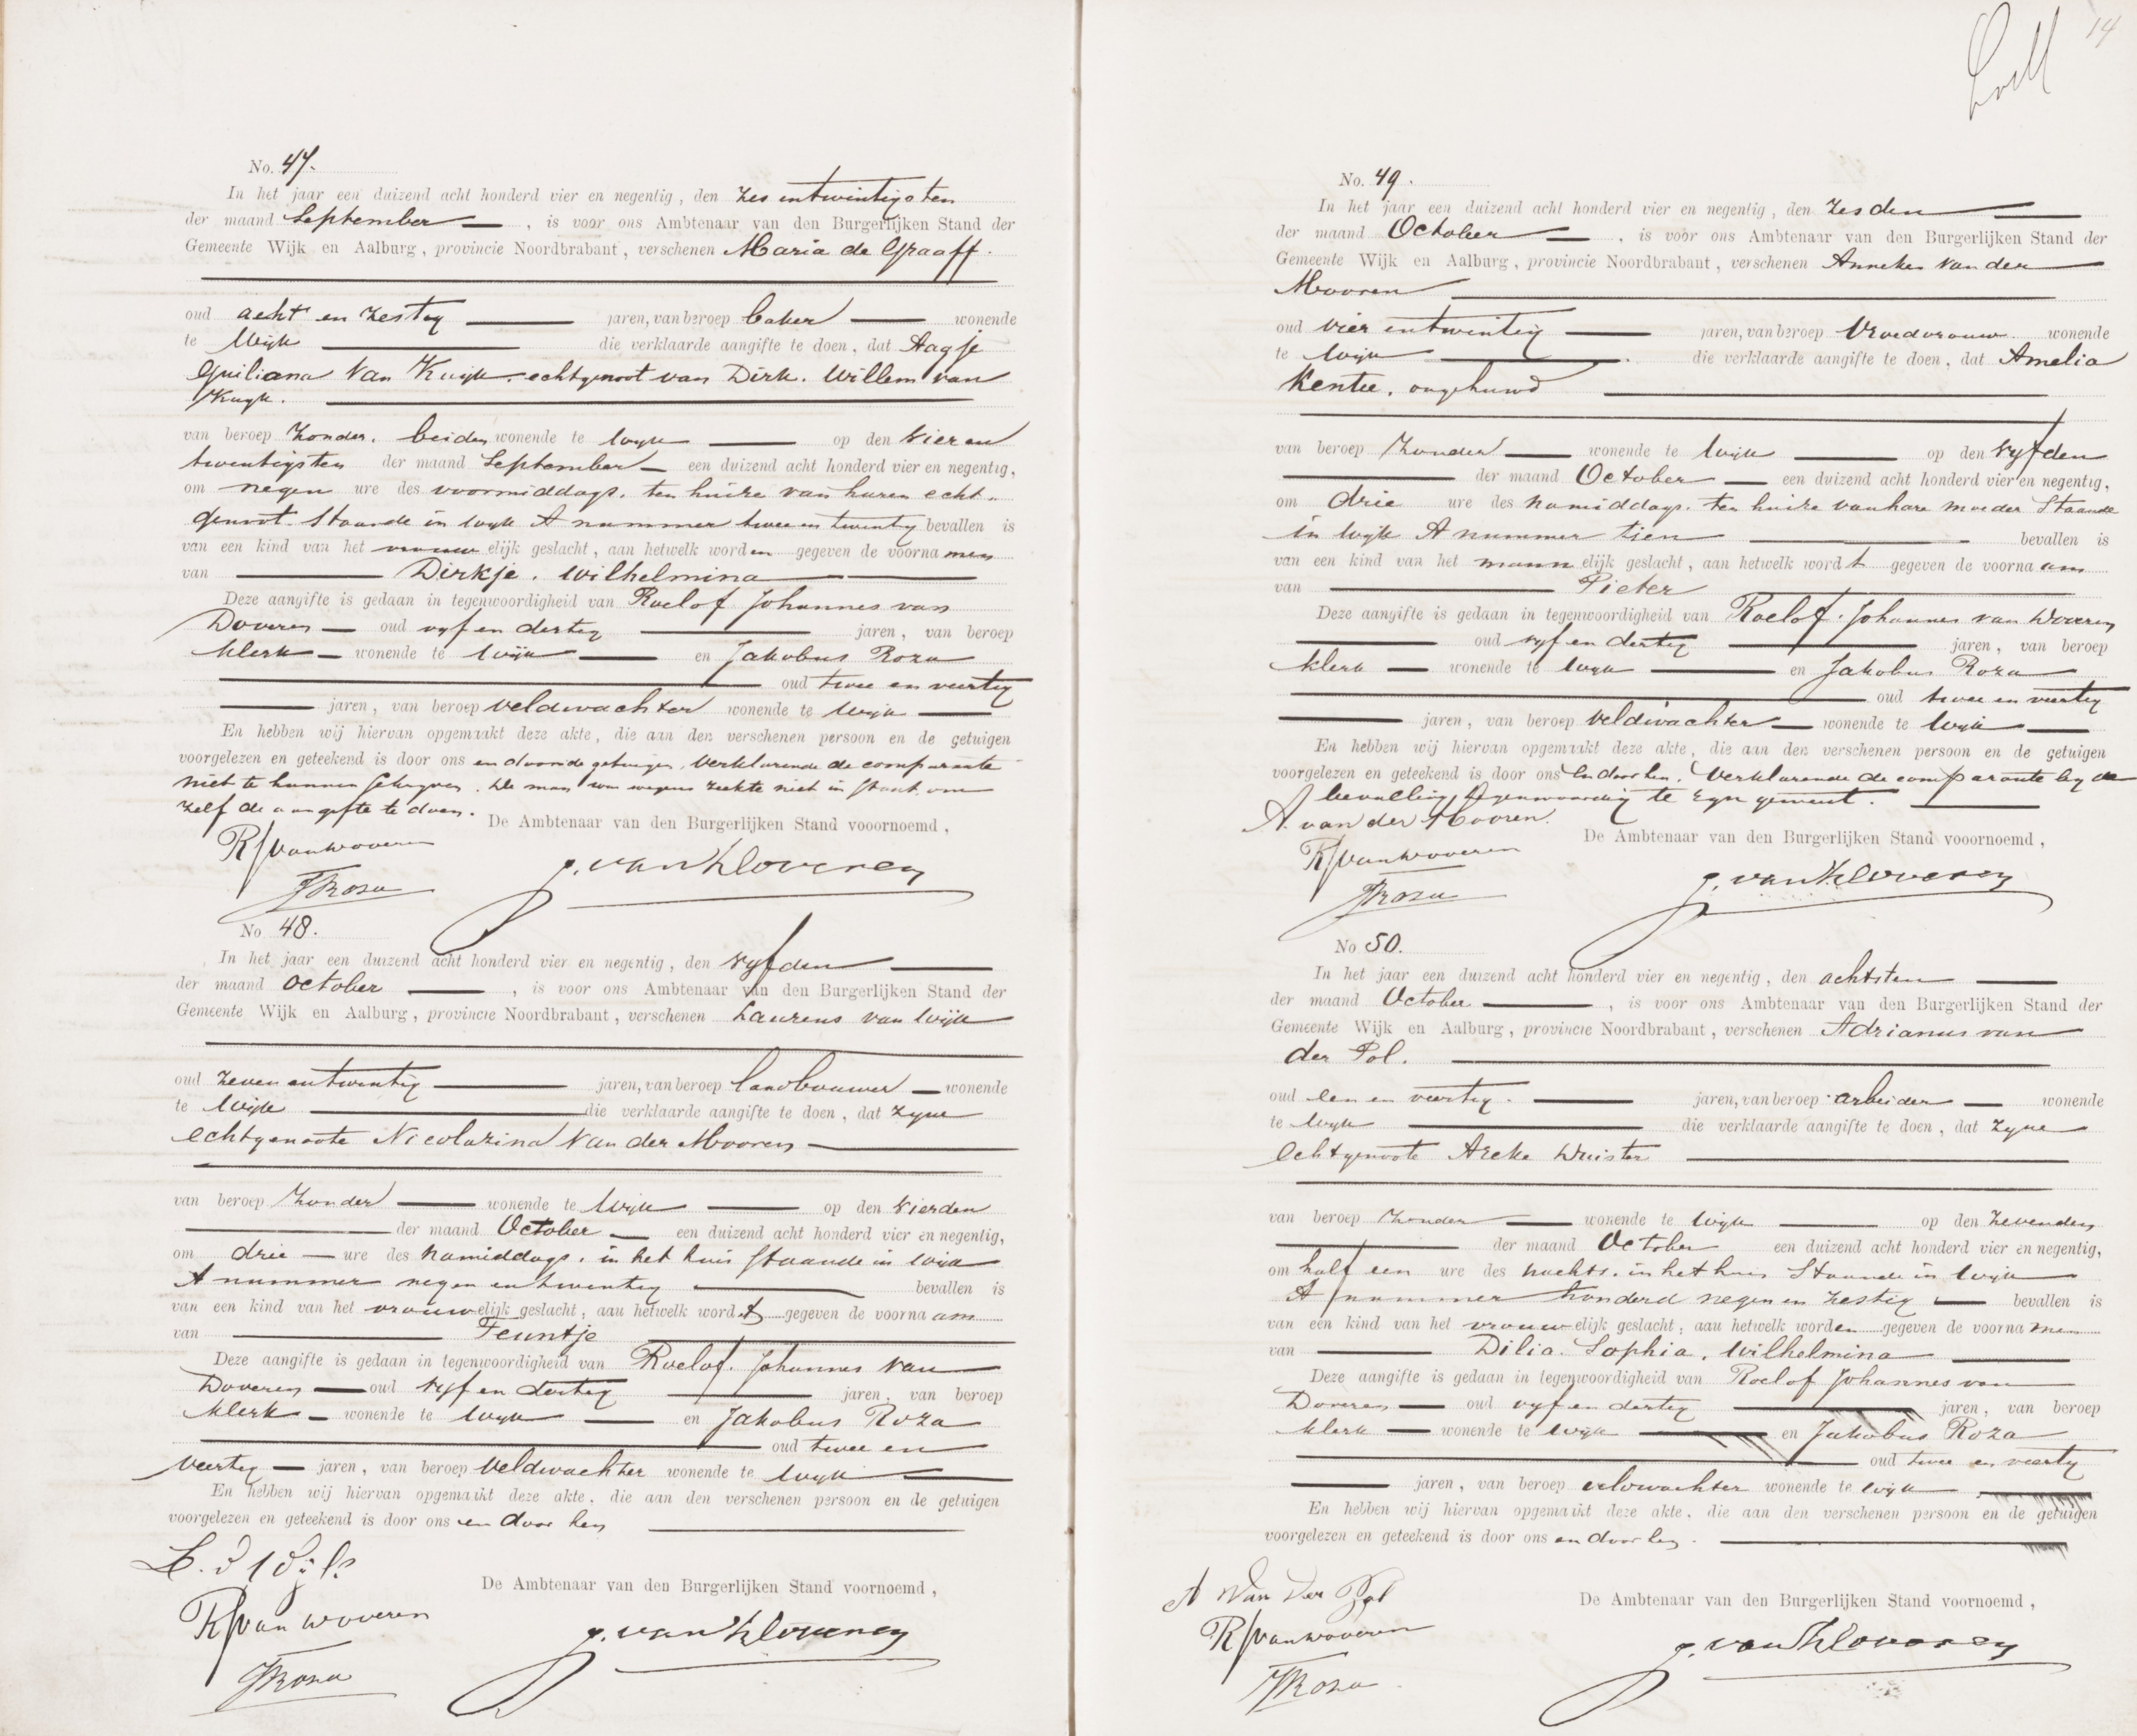 No. 47.
In het jaar een duizend acht honderd vier en negentig, den zes en twintigsten
der maand September, is voor ons Ambtenaar van den Burgerlijken Stand der
Gemeente Wijk en Aalburg, provincie Noordbrabant, verschenen Maria de Graaff.
oud acht en zestig jaren, van beroep baker wonende
te Wijk die verklaarde aangifte te doen, dat Aagje
Guiliana van Kuijk, echtgenoot van Dirk. Willem van
Kuyk.
van beroep Zonder. beiden wonende te Wijk op den vier en
twentigsten der maand September een duizend acht honderd vier en negentig,
om negen ure des voormiddags. ten huize van haren echt-
genoot. Staande in wijk A nummer twee en twintig bevallen is
van een kind van het vrouwelijk geslacht, aan hetwelk worden gegeven de voornamen
van Dirkje. Wilhelmina
Deze aangifte is gedaan in tegenwoordigheid van Roelof Johannes van
Woveren oud vyf en dertig jaren, van beroep
klerk wonende te Wijk en Jakobus Roza
oud twee en veertig
jaren, van beroep veldwachter wonende te Wijk
En hebben wij hiervan opgemaakt deze akte, die aan den verschenen persoon en de getuigen
voorgelezen en geteekend is door ons en door de getuigen, verklarende de comparante
niet te kunnen schryven. De man was wegens ziekte niet in staat om
zelf de aangifte te doen.
De Ambtenaar van den Burgerlijken Stand vooornoemd,
RJ van Woveren
J Roza
No 48.
In het jaar een duizend acht honderd vier en negentig, den vyfden
der maand October, is voor ons Ambtenaar van den Burgerlijken Stand der
Gemeente Wijk en Aalburg, provincie Noordbrabant, verschenen Laurens van Wijk
oud zeven en twintig jaren, van beroep landbouwer wonende
te Wijk die verklaarde aangifte te doen, dat zyne
echtgenoote Nicolazina van der Mooren
van beroep Zonder wonende te Wijk op den vierden
der maand October een duizend acht honderd vier en negentig,
om drie ure des namiddags. in het huis staande in wijk
A nummer negen en twintig bevallen is
van een kind van het vrouwelijk geslacht, aan hetwelk wordt gegeven de voornaam
van Teuntje
Deze aangifte is gedaan in tegenwoordigheid van Roelof. Johannes van
Woveren oud vyf en dertig jaren, van beroep
klerk wonende te Wijk en Jakobus Roza
oud twee en
veertig jaren, van beroep veldwachter wonende te Wijk
En hebben wij hiervan opgemaakt deze akte, die aan den verschenen persoon en de getuigen
voorgelezen en geteekend is door ons en door hen
De Ambtenaar van den Burgerlijken Stand voornoemd,
RJ van Woveren
J Roza
14
No. 49.
In het jaar een duizend acht honderd vier en negentig, den zesden
der maand October, is voor ons Ambtenaar van den Burgerlijken Stand der
Gemeente Wijk en Aalburg, provincie Noordbrabant, verschenen Anneke van der
Mooren
oud vier en twintig jaren, van beroep Vroedvrouw wonende
te Wijk die verklaarde aangifte te doen, dat Amelia
Kentie, ongehuwd
van beroep Zonder wonende te Wijk op den vyfden
der maand October een duizend acht honderd vier en negentig,
om drie ure des namiddags. ten huize van hare moeder staande
in wijk A nummer tien bevallen is
van een kind van het mannelijk geslacht, aan hetwelk wordt gegeven de voornaam
van Pieter
Deze aangifte is gedaan in tegenwoordigheid van Roelof. Johannes van Woveren
oud vyf en dertig jaren, van beroep
klerk wonende te Wijk en Jakobus Roza
oud twee en veertig
jaren, van beroep veldwachter wonende te Wijk
En hebben wij hiervan opgemaakt deze akte, die aan den verschenen persoon en de getuigen
voorgelezen en geteekend is door ons en door hen. Verklarende de comparante by de
bevalling tegenwoordig te zyn geweest.
A. van der Mooren.
De Ambtenaar van den Burgerlijken Stand vooornoemd,
RJ van Woveren
J Roza
No 50.
In het jaar een duizend acht honderd vier en negentig, den achtsten
der maand October, is voor ons Ambtenaar van den Burgerlijken Stand der
Gemeente Wijk en Aalburg, provincie Noordbrabant, verschenen Adrianus van
der Pol.
oud een en veertig. jaren, van beroep arbeider wonende
te Wijk die verklaarde aangifte te doen, dat zyne
Echtgenoote Areke
van beroep Zonder wonende te Wijk op den zevenden
der maand October een duizend acht honderd vier en negentig,
om half een ure des nachts. in het huis staande in wijk
A nummer honderd negen en zestig bevallen is
van een kind van het vrouwelijk geslacht, aan hetwelk worden gegeven de voornamen
van Dilia. Sophia. Wilhelmina
Deze aangifte is gedaan in tegenwoordigheid van Roelof Johannes van
Woveren oud vyf en dertig jaren, van beroep
klerk wonende te Wijk en Jakobus Roza
oud twee en veertig
jaren, van beroep veldwachter wonende te Wijk
En hebben wij hiervan opgemaakt deze akte, die aan den verschenen persoon en de getuigen
voorgelezen en geteekend is door ons en door hen.
A van der Pol
De Ambtenaar van den Burgerlijken Stand voornoemd,
RJ van Woveren
J Roza